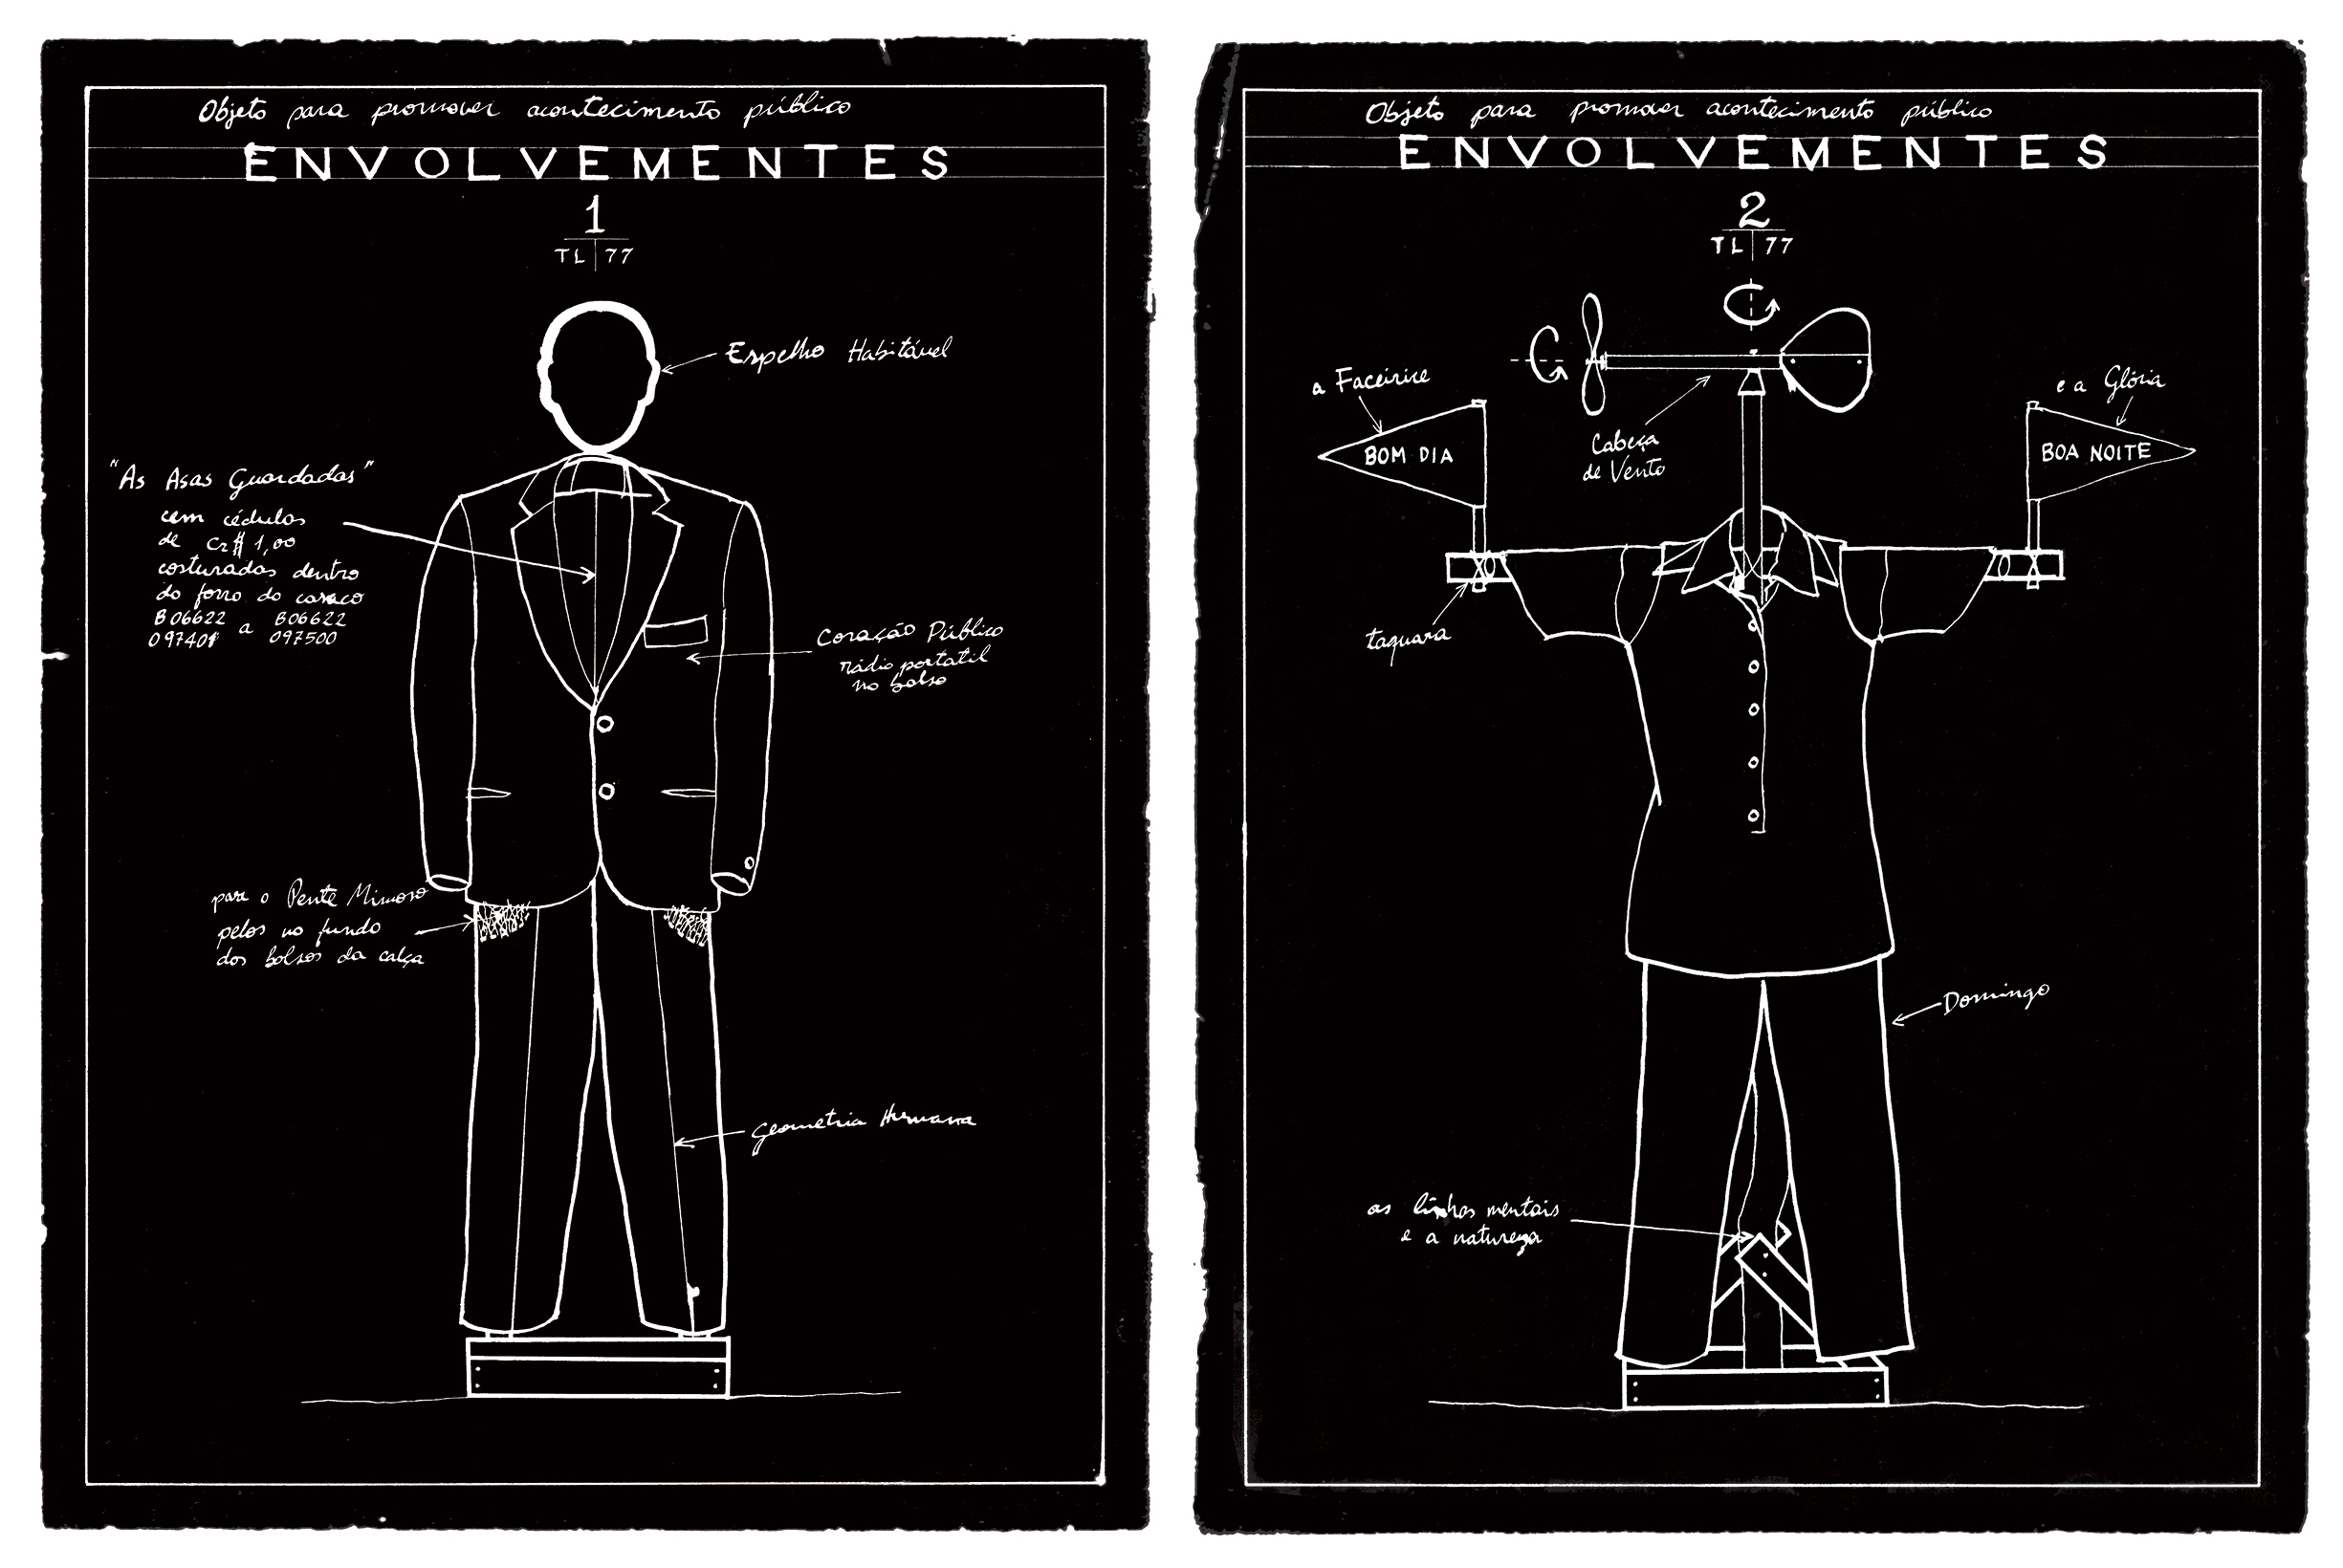 Objeto para promover acontecimento público
ENVOLVEMENTES
1
TL 77
Espelho Habitável
"As Asas Guardadas"
cem cédulas
de Cr$ 1,00
costuradas dentro
do forro do casaco
B06622 a B06622
097401 097500
Coração Público
rádio portatil
no bolso
para o Pente Mimoso
pelos no fundo
dos bolsos da calça
Geometria Humana
Objeto para promover acontecimento público
ENVOLVEMENTES
2
TL 77
a Faceirice
e a Glória
BOM DIA
BOA NOITE
Cabeça
de Vento
taquara
Domingo
as linhas mentais
e a natureza